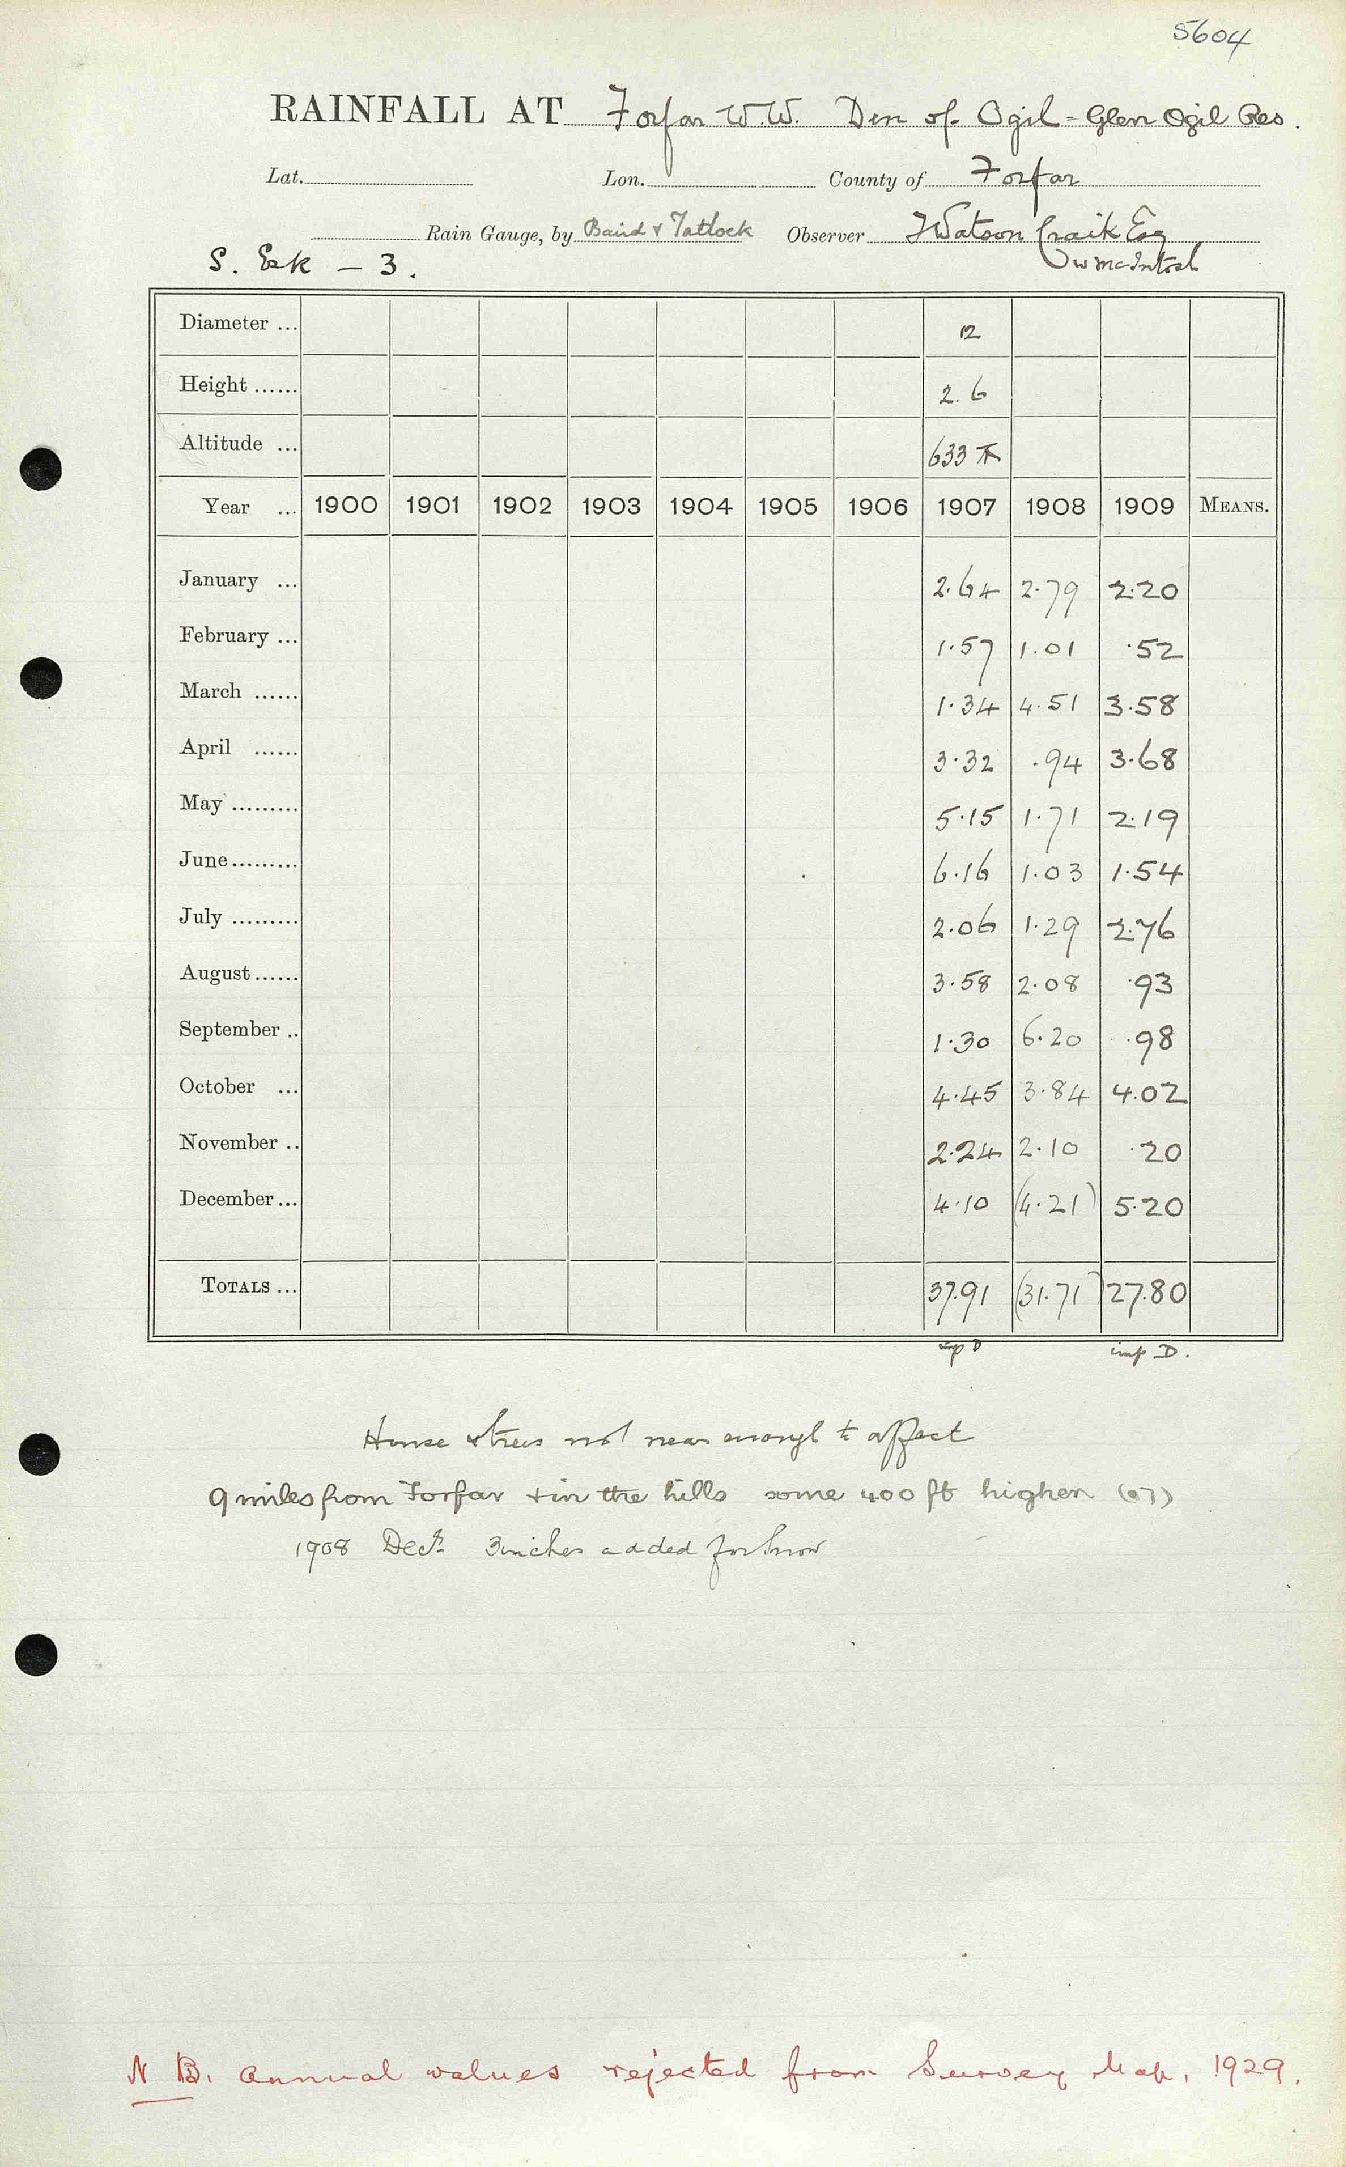 5604
RAINFALL AT Forfar W.W. Den of Ogil = Glen Ogil Res.
Lat. Lon. County of Forfar
Rain Gauge, by Baird & Tatlock Observer J Watson Craik Esq
S. Esk - 3. W McIntosh
Diameter ... 12
Height ...... 2.6
Altitude ... 633
Year ... 1900 1901 1902 1903 1904 1905 1906 1907 1908 1909 MEANS.
January ... 2.64 2.79 2.20
February ... 1.57 1.01 .52
March ...... 1.34 4.51 3.58
April ...... 3.32 .94 3.68
May ......... 5.15 1.71 2.19
June ......... 6.16 1.03 1.54
July ......... 2.06 1.29 2.76
August ...... 3.58 2.08 .93
September .. 1.30 6.20 .98
October ... 4.45 3.84 4.02
November .. 2.24 2.10 .20
December ... 4.10 (4.21) 5.20
TOTALS ... 37.91 (31.71) 27.80
imp D imp D.
House & trees not near enough to affect
9 miles from Forfar & in the hills some 400 ft higher (07)
1908 Decr. 3 inches added for Snow
N B. Annual values rejected from Survey Map, 1929.